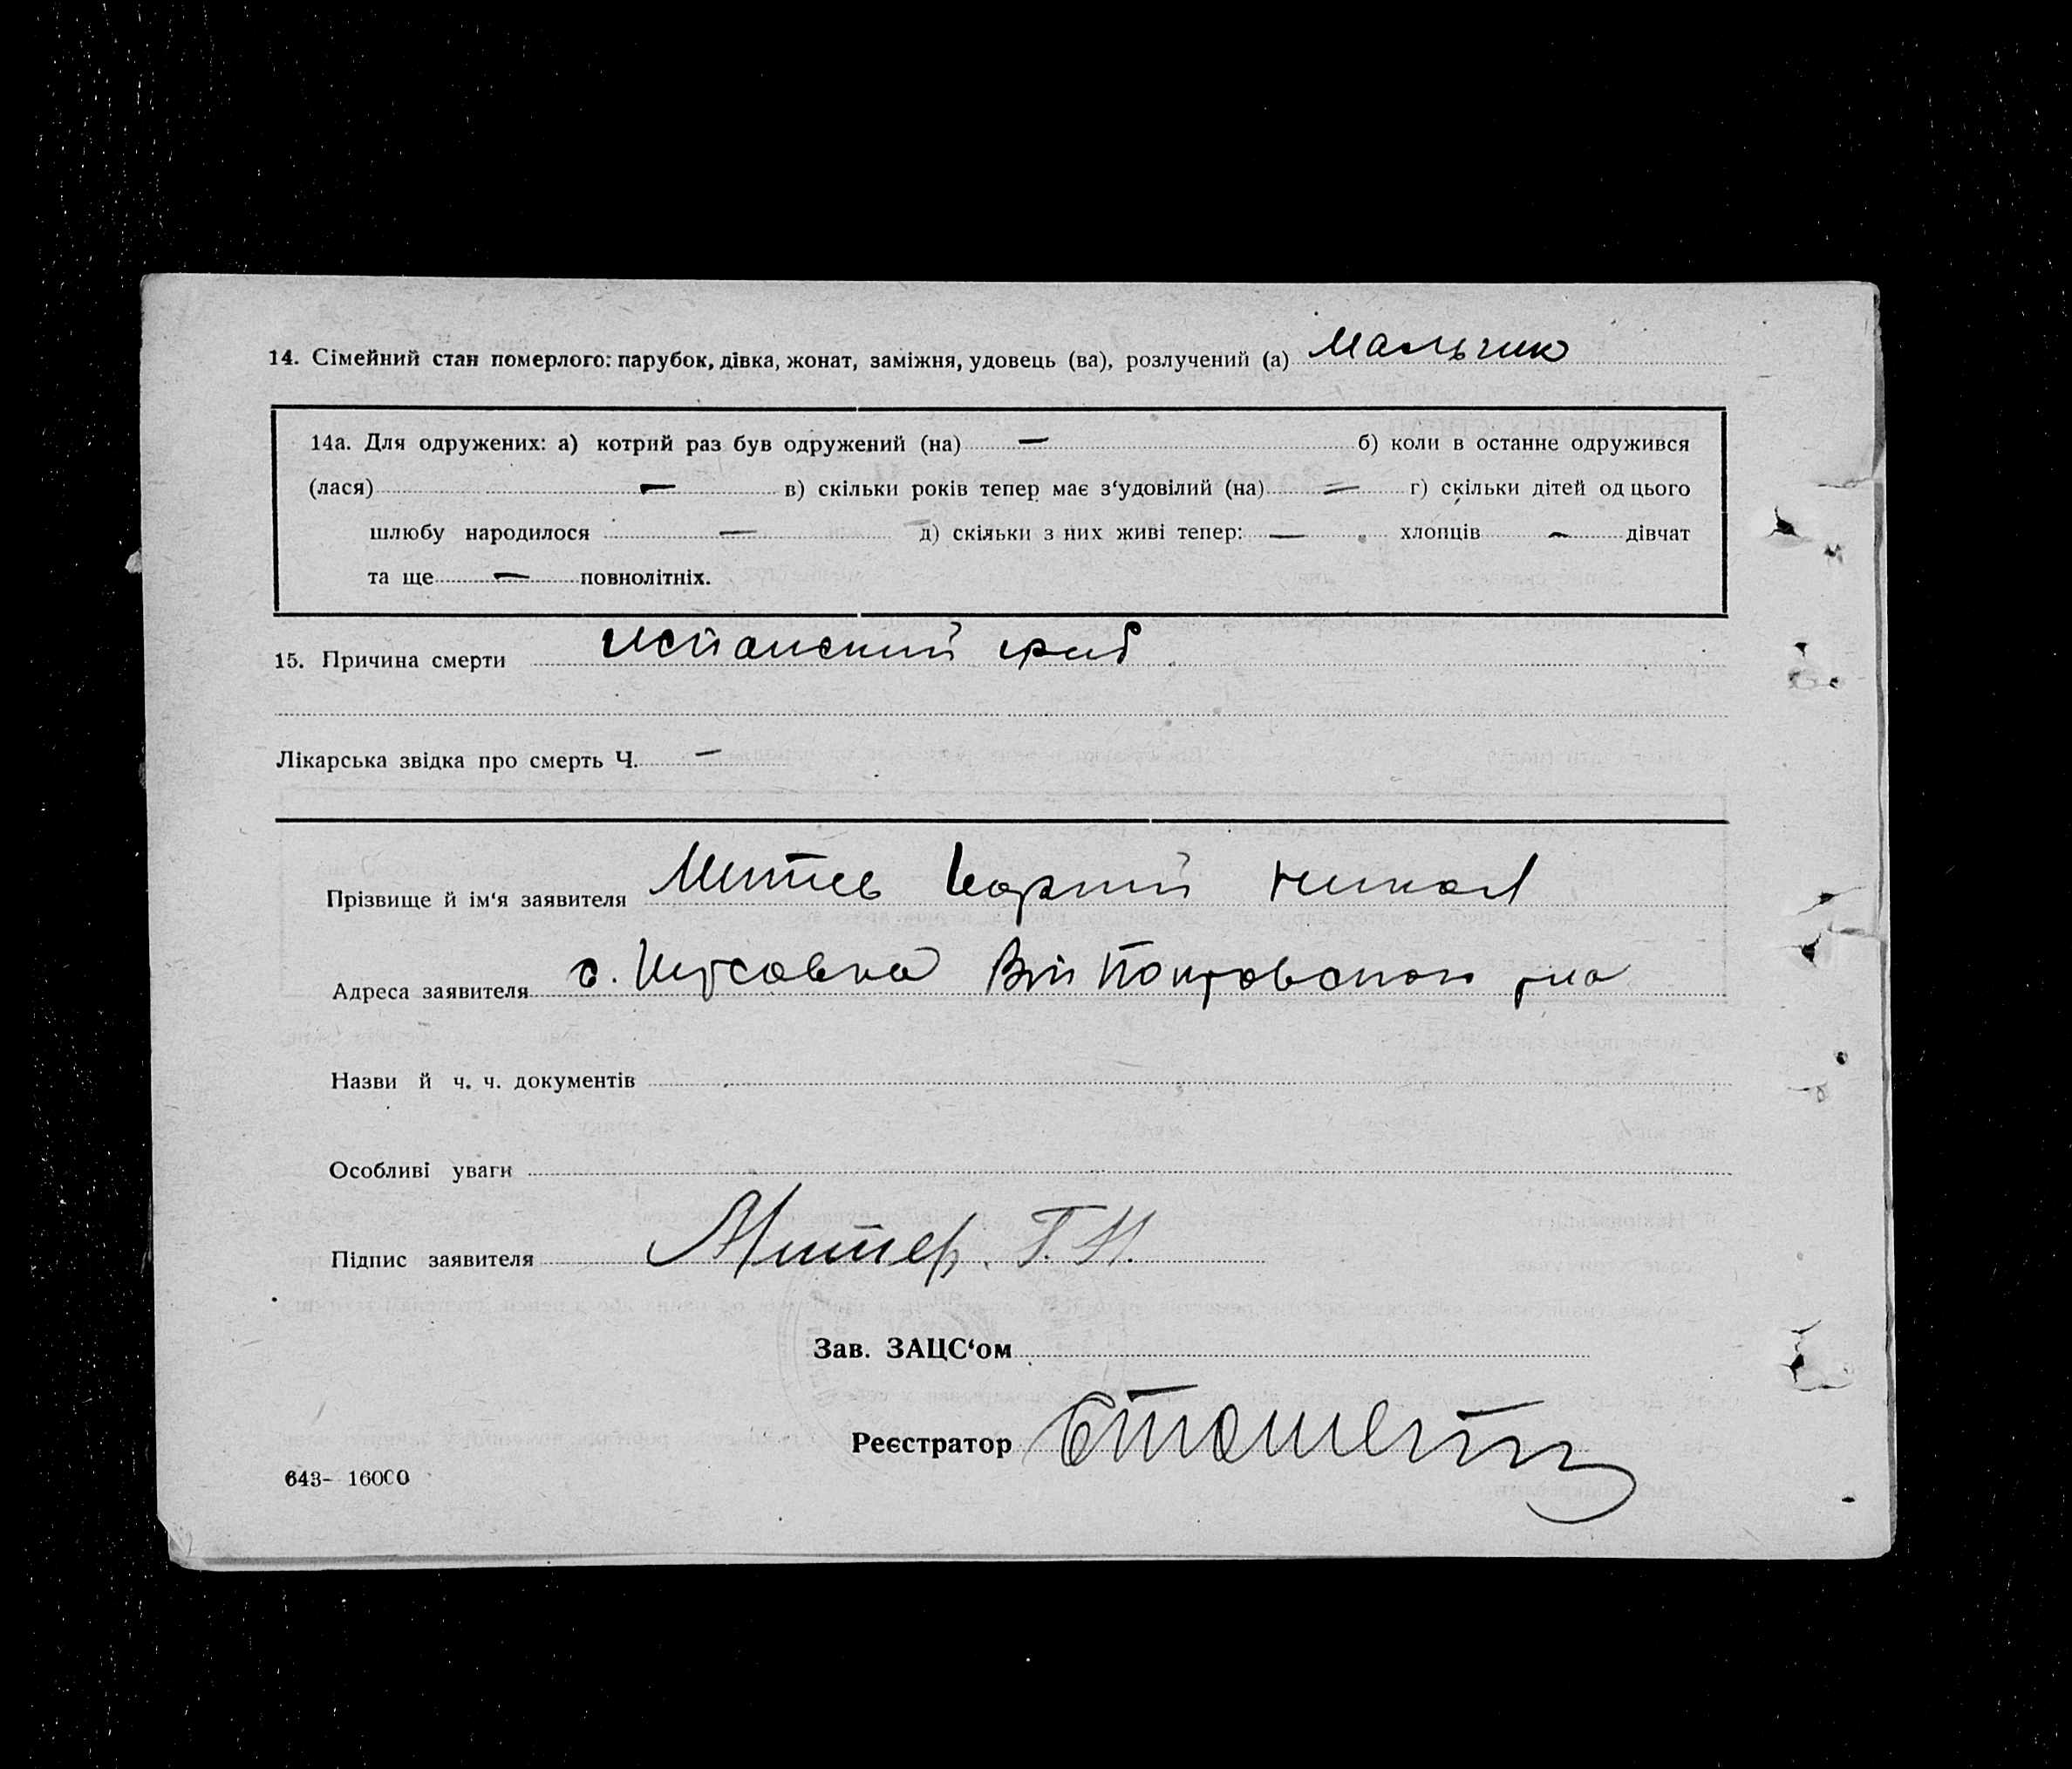 14. Сімейний стан померлого: парубок, дівка, жонат, заміжня, удовець (ва), розлучений (а) мальчик
14а. Для одружених: а) котрий раз був одружений (на) — б) коли в останне одружився
(лася) — в) скільки років тепер має з‘удовілий (на) — г) скільки дітей од цього
шлюбу народилося — д) скільки з них живі тепер: — хлопців — дівчат
та ще — повнолітніх.
15. Причина смерти испанский грип
Лікарська звідка про смерть Ч. —
Прізвище й ім‘я заявителя Митев Никол
Адреса заявителя с. Покровского р-на
Назви й ч. ч. документів
Особливі уваги
Підпис заявителя Митев. Г. Н.
Зав. ЗАЦС‘ом
Реєстратор
643- 16000